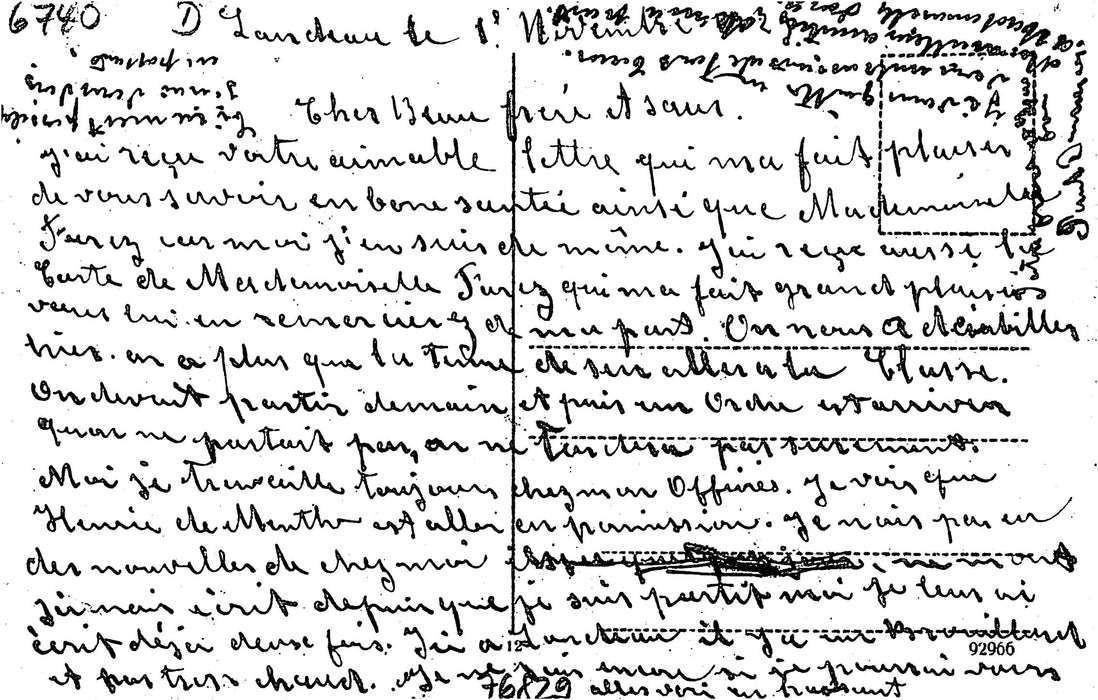 6740
D Landeau le 1er Novembre
Cher Beau frère et sœur.
j'ai reçu votre aimable lettre qui ma fait plaisir
de vous savoir en bone santée ainsi que Mademoiselle
Farez car moi j'en suis de même. j'ai reçue aussi la
Carte de Mademoiselle Farez qui ma fait grand plaisir
vous lui en remercierez de ma part. On nous a déshabiller
hier. on a plus que la tenue de
On devait partir demain et puis un Ordre est arriver
quon ne partait pas, on ne tardera pas surement.
Moi je travaille toujours chez mon Officier. Je vois que
Henri de Menth est aller en permission. Je nais pas eu
des nouvelles de chez moi ne mont
jamais écrit depuis que je suis partit moi je leur ai
écrit déja deux fois. Ici a Landeau il y a un Brouillard
et pas tres chaud. Je ne sais encore si je pourrai vous
aller voir en passant
12
92966
76829
ici en passant
je me
Je vous quitte en
vous embrassant de tout cœur